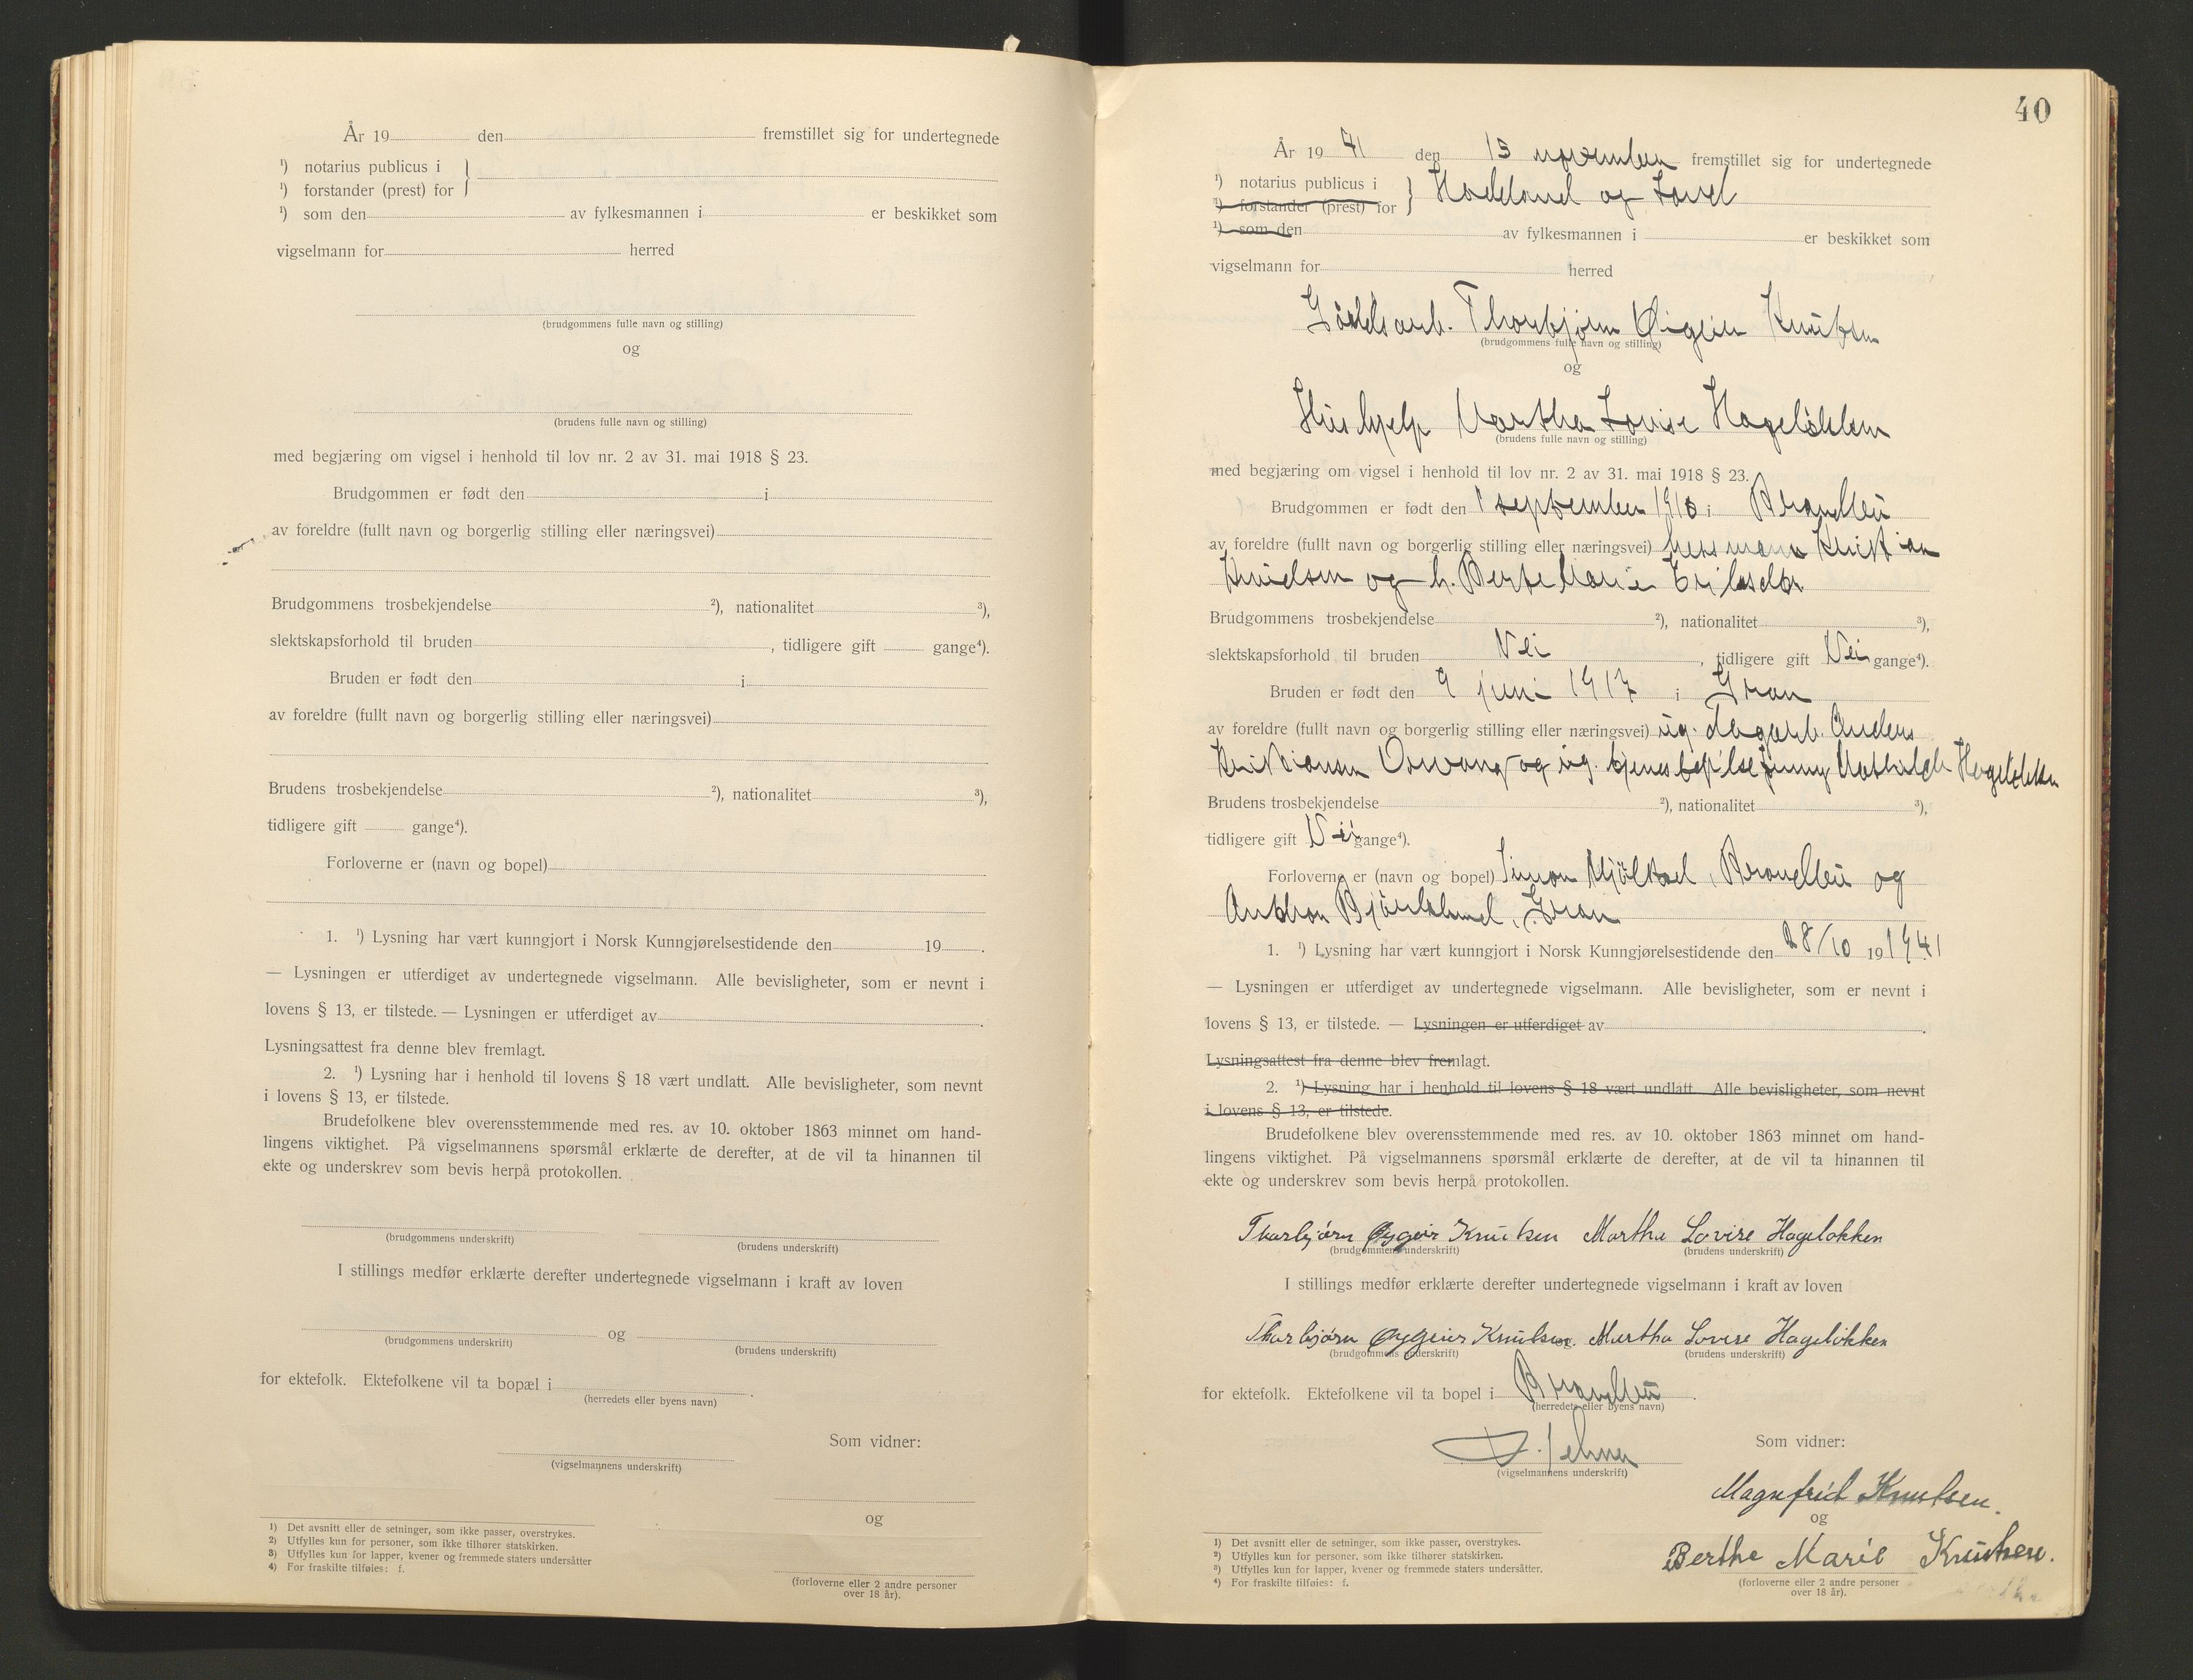 År 19 den fremstillet sig for undertegnede
¹) notarius publicus i
¹) forstander (prest) for
¹) som den av fylkesmannen i er beskikket som
vigselmann for herred
(brudgommens fulle navn og stilling)
og
(brudens fulle navn og stilling)
med begjæring om vigsel i henhold til lov nr. 2 av 31. mai 1918 § 23.
Brudgommen er født den i
av foreldre (fullt navn og borgerlig stilling eller næringsvei)
Brudgommens trosbekjendelse ²), nationalitet ³),
slektskapsforhold til bruden , tidligere gift gange⁴).
Bruden er født den i
av foreldre (fullt navn og borgerlig stilling eller næringsvei)
Brudens trosbekjendelse ²), nationalitet ³),
tidligere gift gange⁴).
Forloverne er (navn og bopel)
1. ¹) Lysning har vært kunngjort i Norsk Kunngjørelsestidende den 19 .
— Lysningen er utferdiget av undertegnede vigselmann. Alle bevisligheter, som er nevnt i
lovens § 13, er tilstede. — Lysningen er utferdiget av .
Lysningsattest fra denne blev fremlagt.
2. ¹) Lysning har i henhold til lovens § 18 vært undlatt. Alle bevisligheter, som nevnt
i lovens § 13, er tilstede.
Brudefolkene blev overensstemmende med res. av 10. oktober 1863 minnet om hand-
lingens viktighet. På vigselmannens spørsmål erklærte de derefter, at de vil ta hinannen til
ekte og underskrev som bevis herpå protokollen.
(brudgommens underskrift) (brudens underskrift)
I stillings medfør erklærte derefter undertegnede vigselmann i kraft av loven
og
(brudgommens underskrift) (brudens underskrift)
for ektefolk. Ektefolkene vil ta bopæl i .
(herredets eller byens navn)
Som vidner:
(vigselmannens underskrift)
og
1) Det avsnitt eller de setninger, som ikke passer, overstrykes.
2) Utfylles kun for personer, som ikke tilhører statskirken.
3) Utfylles kun for lapper, kvener og fremmede staters undersåtter
4) For fraskilte tilføies: f.
(forloverne eller 2 andre personer
over 18 år).
40
År 19 41 den 15 november fremstillet sig for undertegnede
¹) notarius publicus i Hadeland og Land
¹) forstander (prest) for
¹) som den av fylkesmannen i er beskikket som
vigselmann for herred
Gårdsarb. Thorbjørn Øigeir Knutsen
(brudgommens fulle navn og stilling)
og
Hushjelp Martha Lovise Hageløkken
(brudens fulle navn og stilling)
med begjæring om vigsel i henhold til lov nr. 2 av 31. mai 1918 § 23.
Brudgommen er født den 1 september 1910 i Brandbu
av foreldre (fullt navn og borgerlig stilling eller næringsvei) Kristian
Knudsen og h. Berte Marie Eriksdtr
Brudgommens trosbekjendelse ²), nationalitet ³),
slektskapsforhold til bruden Nei , tidligere gift Nei gange⁴).
Bruden er født den 9 juni 1917 i Gran
av foreldre (fullt navn og borgerlig stilling eller næringsvei) ug. dagarb. Anders
Kristiansen og ug. Jenny Mathilde Hageløkken
Brudens trosbekjendelse ²), nationalitet ³),
tidligere gift Nei gange⁴).
Forloverne er (navn og bopel) Simon Mjølstad, Brandbu og
Anton Gran
1. ¹) Lysning har vært kunngjort i Norsk Kunngjørelsestidende den 28/10 19 1941
— Lysningen er utferdiget av undertegnede vigselmann. Alle bevisligheter, som er nevnt i
lovens § 13, er tilstede. — Lysningen er utferdiget av .
Lysningsattest fra denne blev fremlagt.
2. ¹) Lysning har i henhold til lovens § 18 vært undlatt. Alle bevisligheter, som nevnt
i lovens § 13, er tilstede.
Brudefolkene blev overensstemmende med res. av 10. oktober 1863 minnet om hand-
lingens viktighet. På vigselmannens spørsmål erklærte de derefter, at de vil ta hinannen til
ekte og underskrev som bevis herpå protokollen.
Thorbjørn Øygeir Knutsen Martha Lovise Hageløkken
(brudgommens underskrift) (brudens underskrift)
I stillings medfør erklærte derefter undertegnede vigselmann i kraft av loven
Thorbjørn Øygeir Knutsen. Martha Lovise Hageløkken
(brudgommens underskrift) (brudens underskrift)
for ektefolk. Ektefolkene vil ta bopel i Brandbu .
(herredets eller byens navn)
Som vidner:
(vigselmannens underskrift)
Magnfrid Knutsen.
og
Berthe Marie Knutsen.
1) Det avsnitt eller de setninger, som ikke passer, overstrykes.
2) Utfylles kun for personer, som ikke tilhører statskirken.
3) Utfylles kun for lapper, kvener og fremmede staters undersåtter.
4) For fraskilte tilføies: f.
(forloverne eller 2 andre personer
over 18 år).